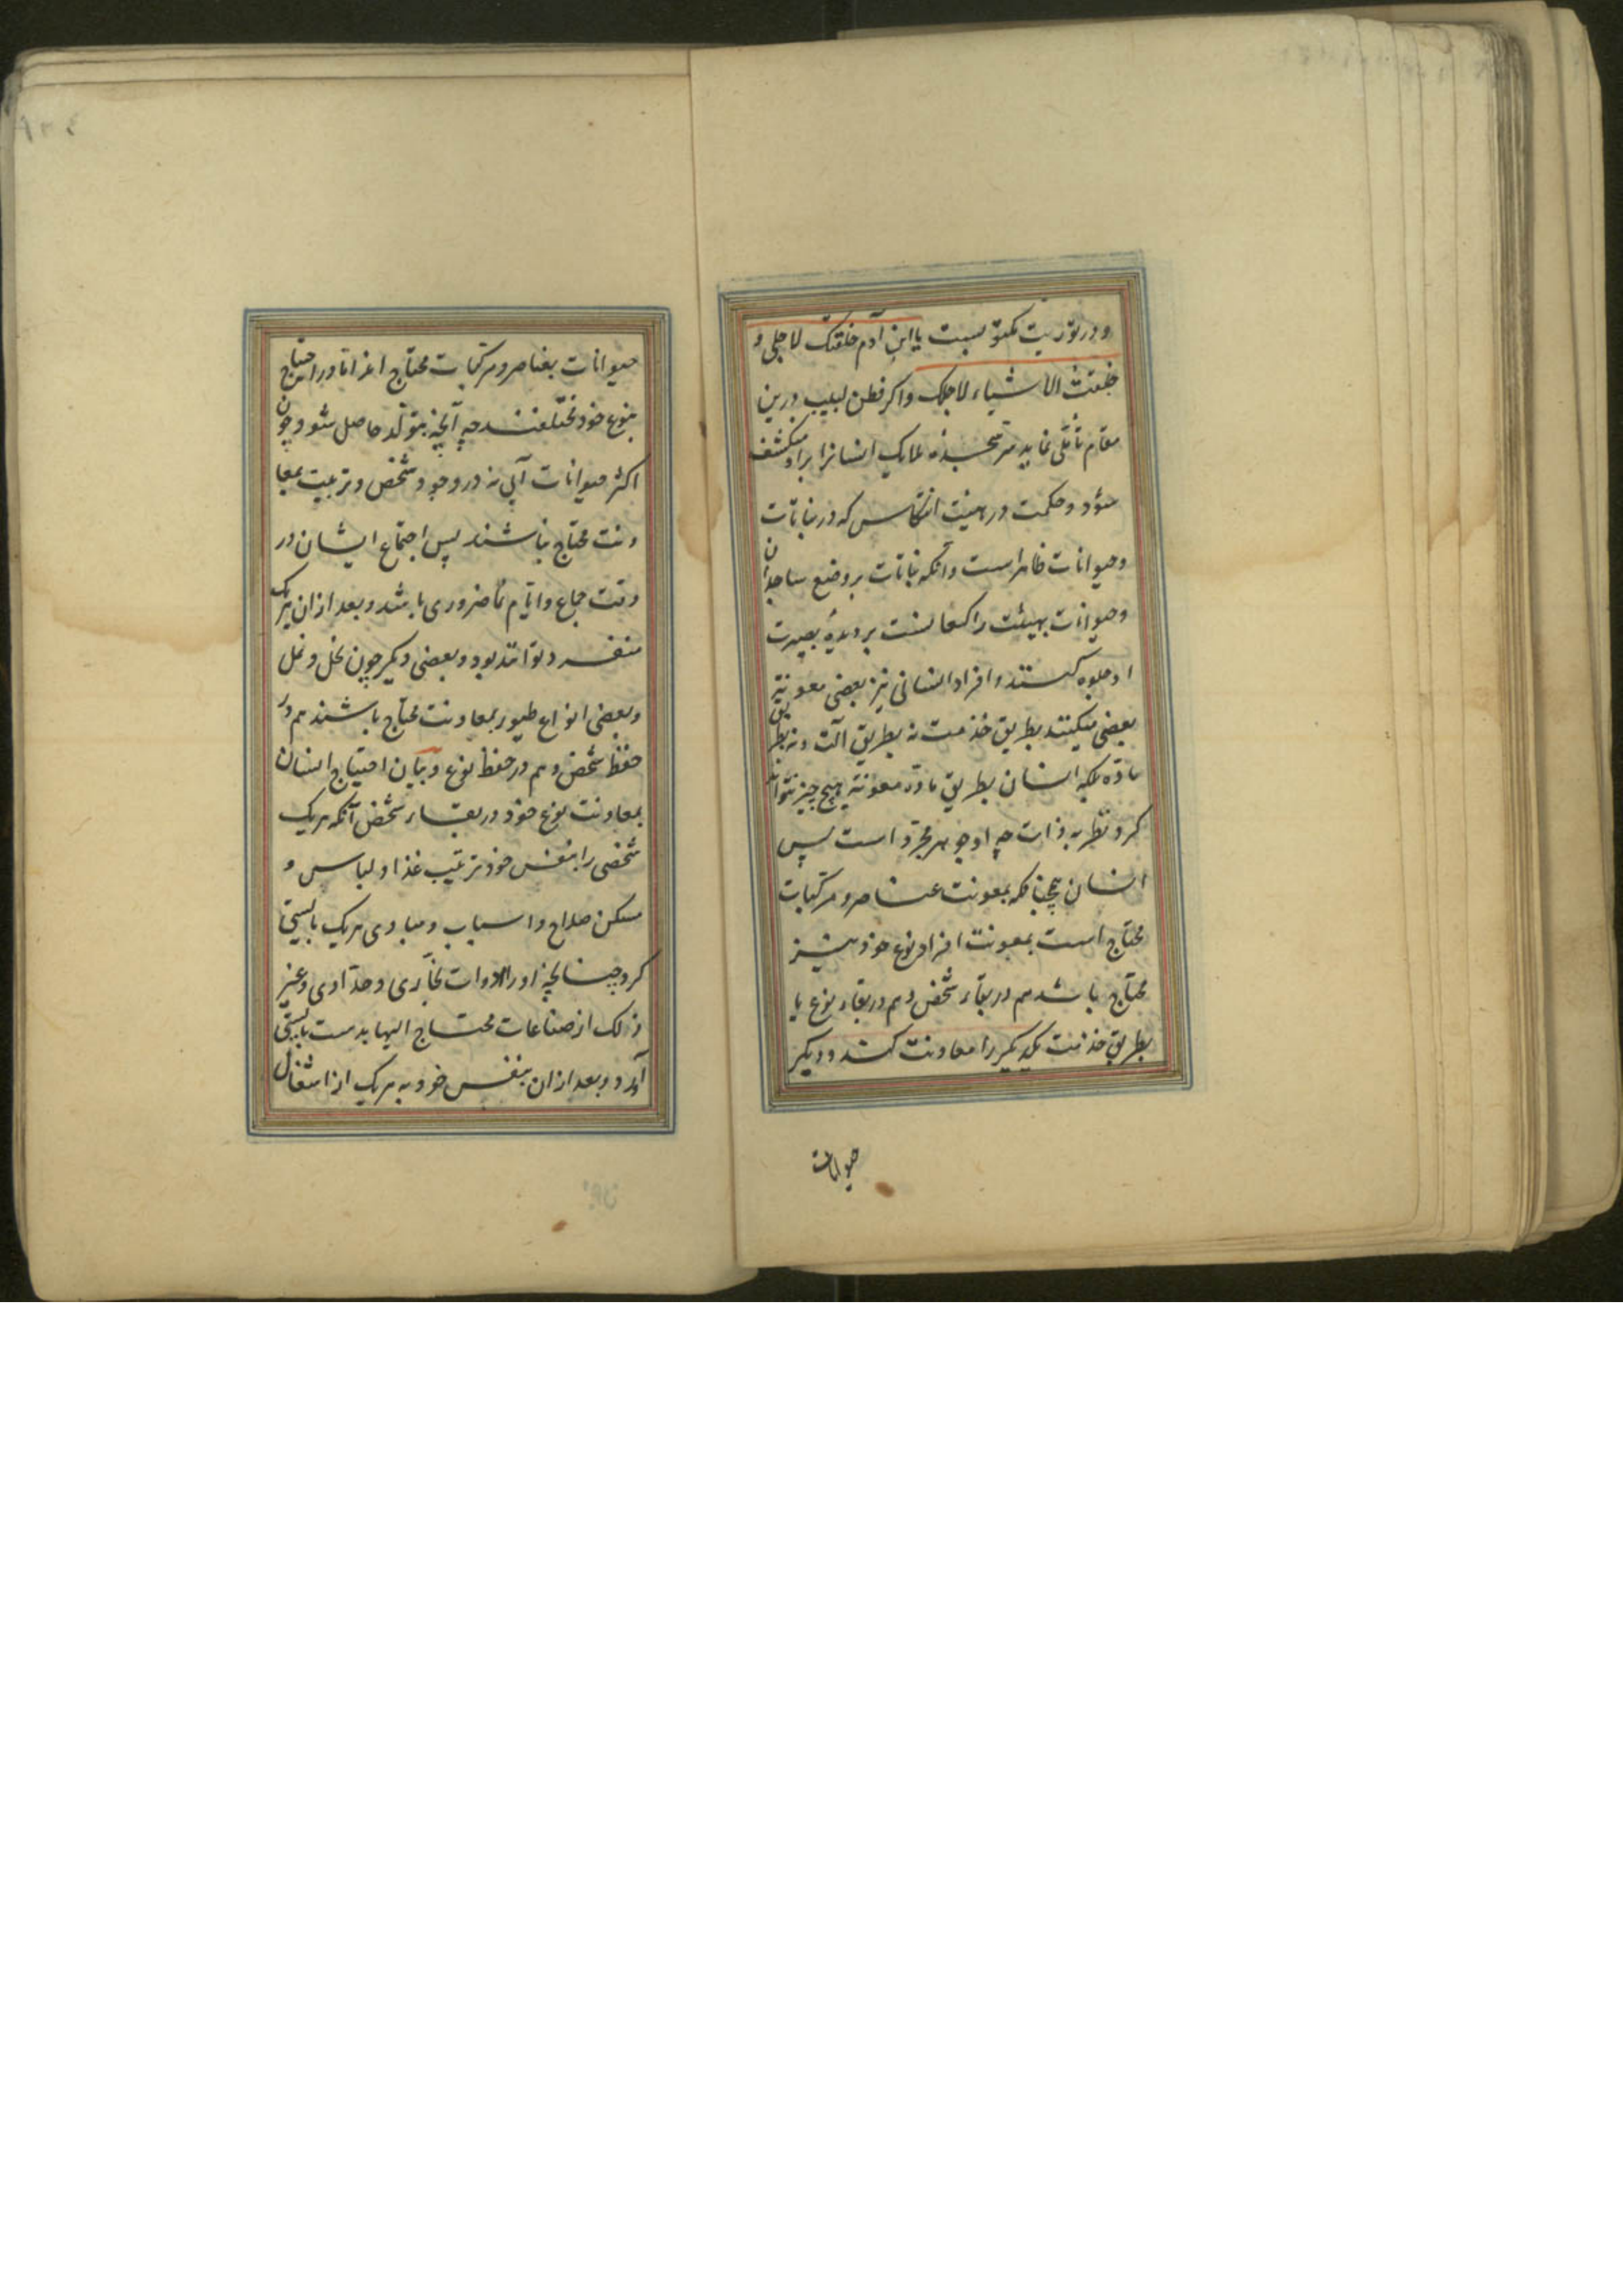 و در توریت مکتوبست یا ابن آدم خلقتک لاجلی و
خلقت الاشیاء لاجلک و اکر فطن لبیب درین
مقام تأملی نماید سر سجده ملایک انسانرا برو منکشف
شود و حکمت در هیئت انتکاس که در نباتات
و حیوانات ظاهر است و آنکه نباتات بر وضع ساجدان
و حیوانات بهیئت راکعانست بر دیدهٔ بصیرت
او جلوه کند و افراد انسانی نیز بعضی معونة
بعضی میکنند بطریق خذمت نه بطریق آلت و نه بطریق
مادّه بلکه انسان بطریق مادّه معونة هیچ چیز نتواند
کرد نظر به ذات چه او جوهر مجرّد است پس
انسان همچنانکه بمعونت عناصر و مرکبات
محتاج است بمعونت افراد نوع خود نیز
محتاج باشد هم در بقاء شخص و هم در بقاء نوع یا
بطریق خذمت یکدیکر را معاونت کنند و دیکر
حیوانات
حیوانات بعناصر و مرکبات محتاج اند امّا در احتیاج
بنوع خود مختلفند چه آنچه بتولّد حاصل شود چون
اکثر حیوانات آبی نه در وجود شخص و تربیت بمعا
ونت محتاج نباشند پس اجتماع ایشان در
وقت جماع و ایام نما ضروری باشد و بعد ازان هر یک
منفرد توانند بود و بعضی دیکر چون نحل و نمل
و بعضی انواع طیور بمعاونت محتاج باشند هم در
حفظ شخص و هم در حفظ نوع و بیان احتیاج انسان
بمعاونت نوع خود در بقاء شخص آنکه هر یک
شخصی را بنفس خود ترتیب غذا و لباس و
مسکن صلاح و اسباب و مبادی هر یک بایستی
کرد چنانچه اورا ادوات نجّاری و حدّادی و غیر
ذلک از صناعات محتاج الیها بدست بایستی
آورد و بعد ازان بنفس خود به هر یک از اشغال